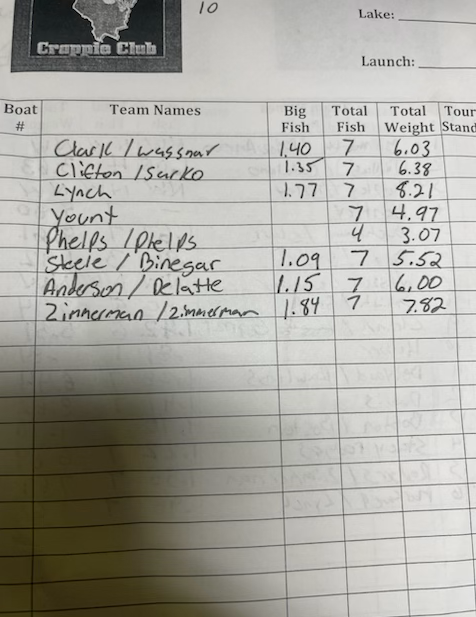 10
Crappie Club
Lake:
Launch:
Boat # Team Names Big Fish Total Fish Total Weight Tour Stand
Clark / Wassnar 1.40 7 6.03
Clifton / Sarko 1.35 7 6.38
Lynch 1.77 7 8.21
Yount 7 4.97
Phelps / Phelps 4 3.07
Steele / Binegar 1.09 7 5.52
Anderson / Delatte 1.15 7 6.00
Zimmerman / Zimmerman 1.84 7 7.82